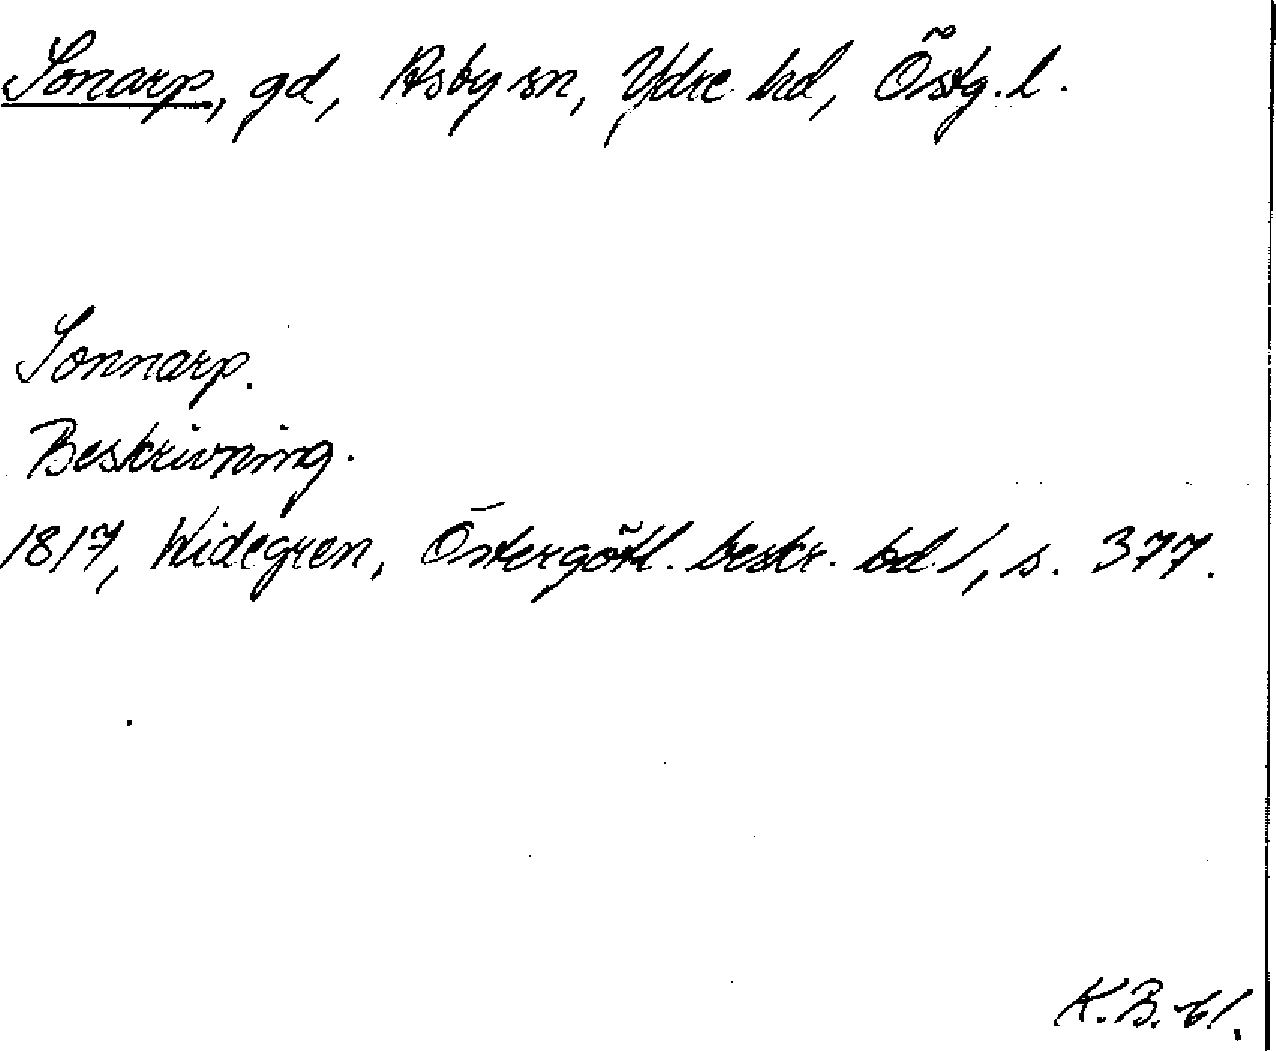 Sonarp, gd, Asby sn, Ydre hd, Östg. l.
Sonnarp.
Beskrivning.
1817, Widegren, Östergötl. beskr. bd 1, s. 377.
K.B. 61.